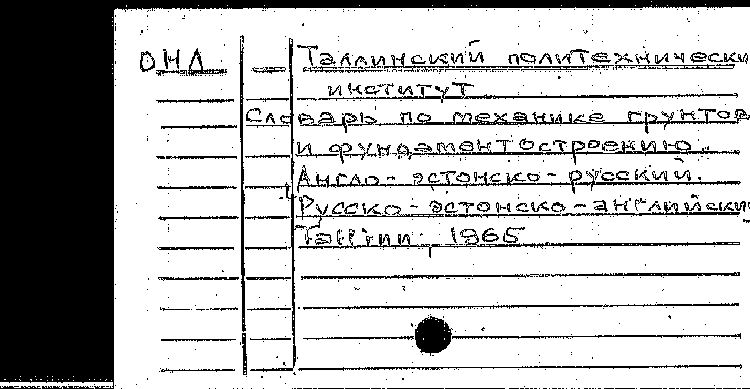 ОНЛ — Таллинский политехнически
институт
Словарь по механике грунтов
и фундаментостроению.
Англо-эстонско-русский.
Русско-эстонско-английский
Таллин, 1965